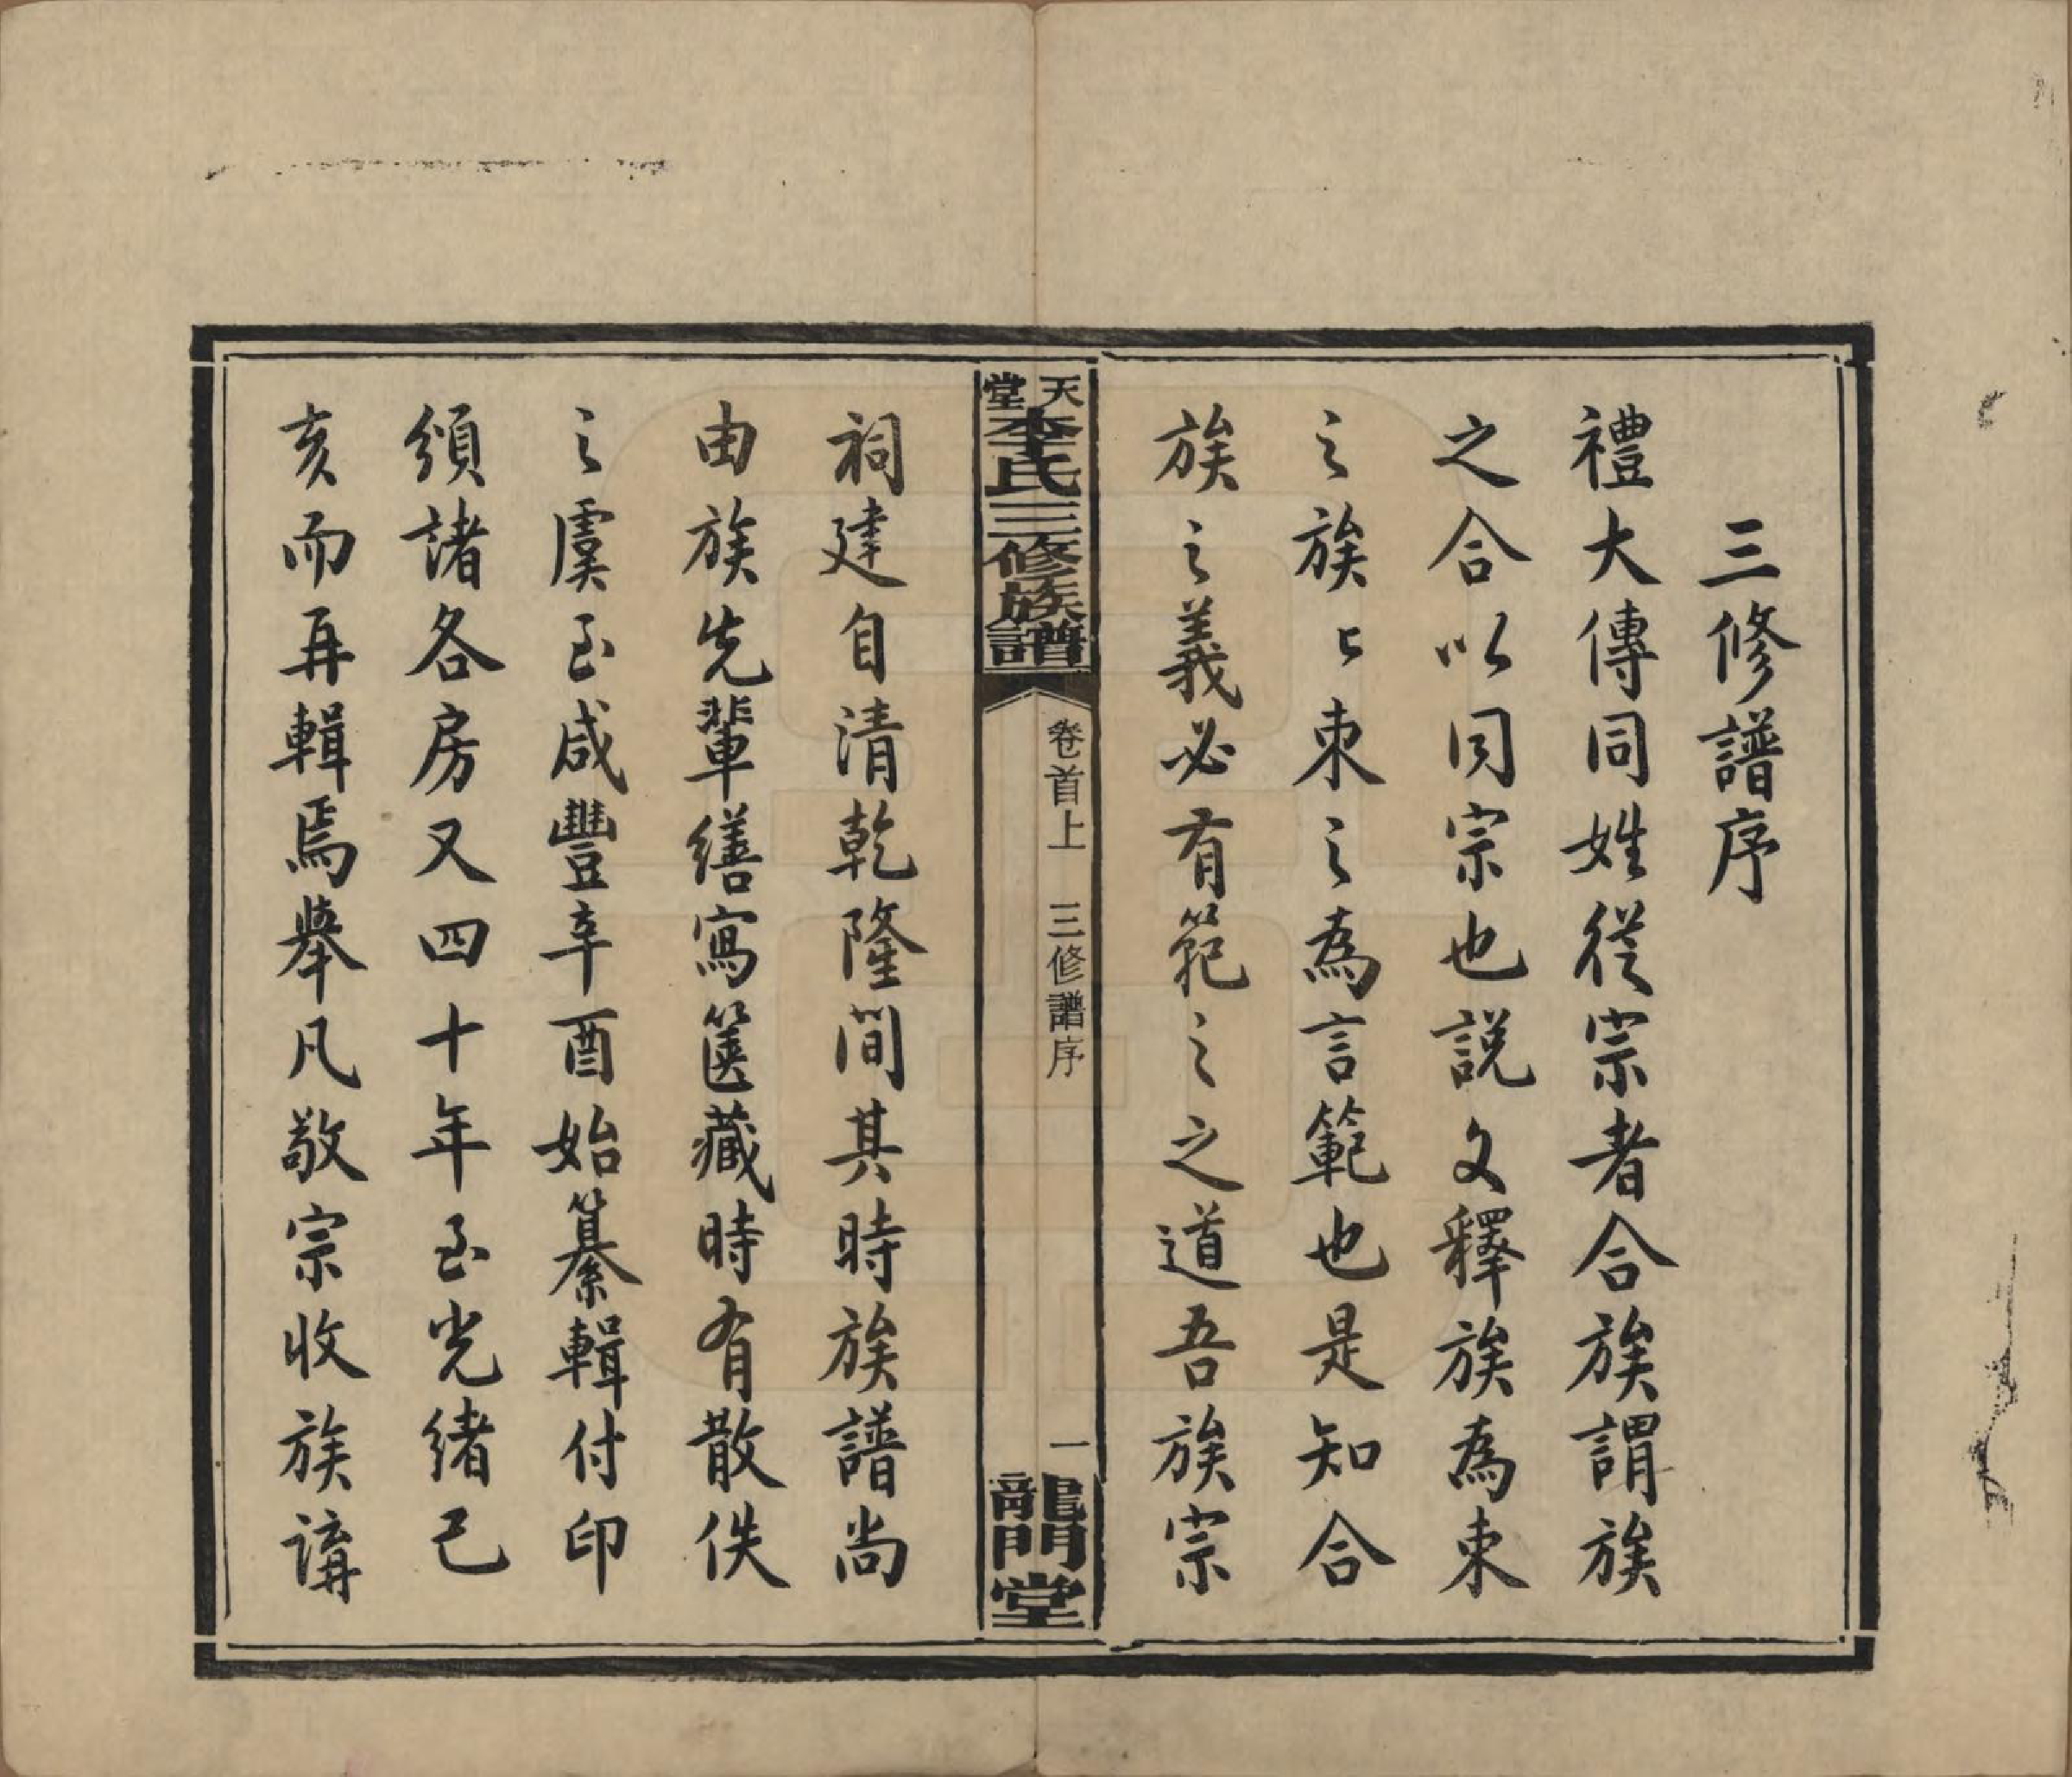 三修譜序
禮大傳同姓從宗者合族謂族
之合以同宗也説文釋族為束
之族〻束之為言範也是知合
族之義必有範之之道吾族宗
天堂李氏三修族譜
卷首上 三修譜序
一
龍門堂
祠建自清乾隆間其時族譜尚
由族先輩繕寫篋藏時有散佚
之虞至咸豐辛酉始纂輯付印
頒諸各房又四十年至光緒己
亥而再輯焉舉凡敬宗收族講